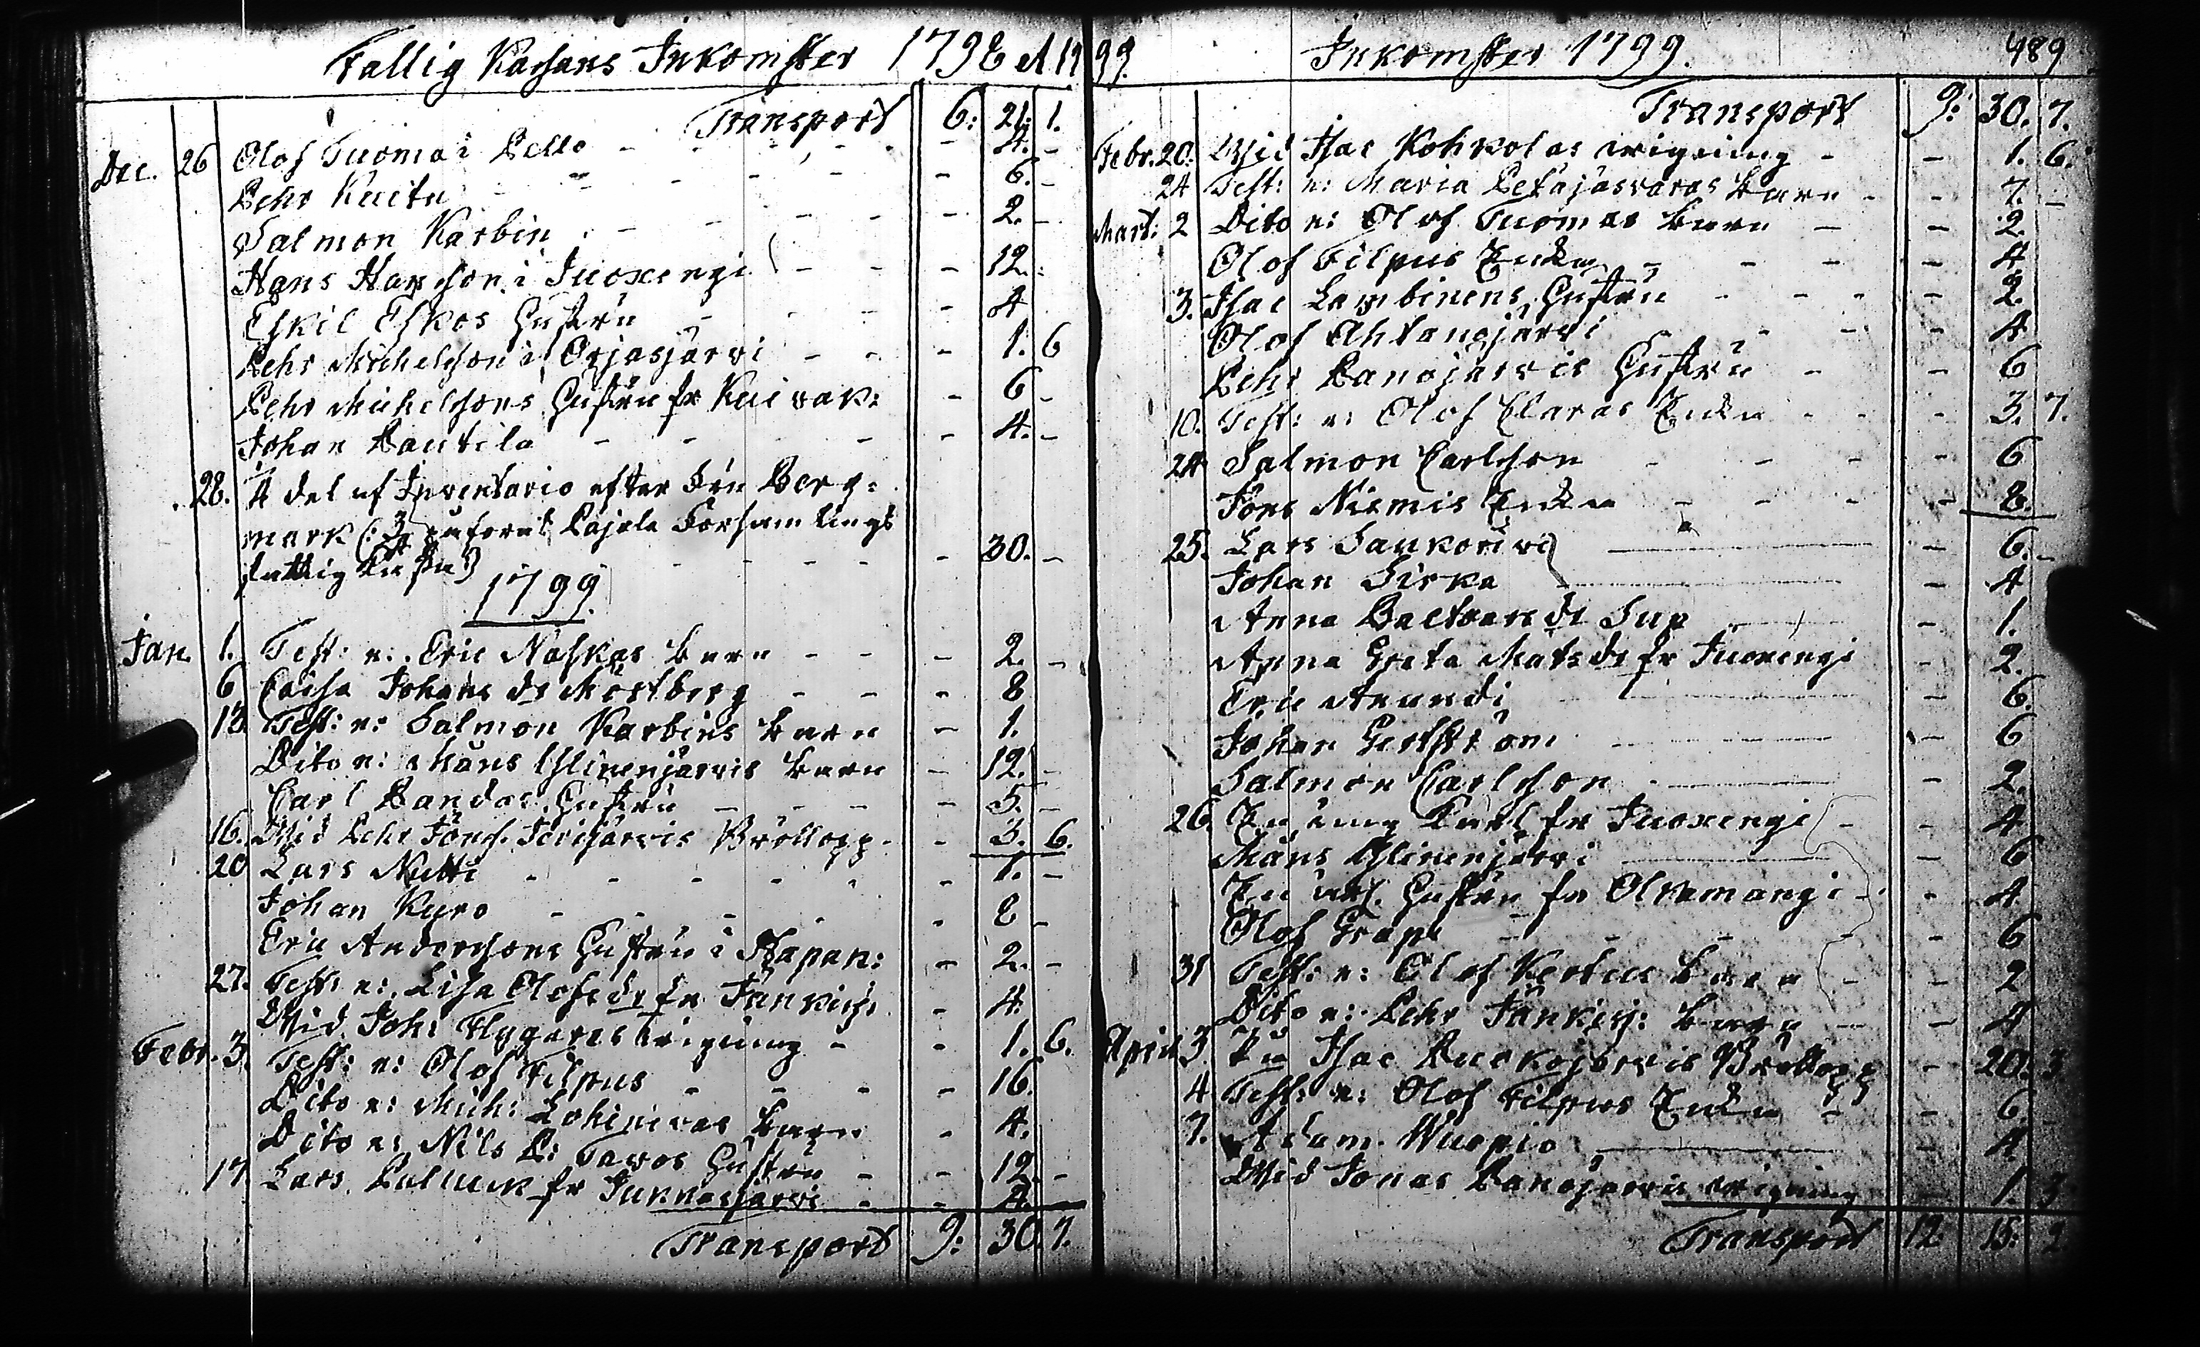 Fattig Kassans Inkomster 1798 et 1799.
Transport 6: 21. 1.
Dec. 26 Olof Tuoma i Pello - 4. -
Pehr Kuitu - 6. -
Salmon Karbin - 2. -
Hans Hansson i Juoxengi - 12.
Eskil Eskos Hustru - 4
Pehr Michelsson i Orjasjärvi - 1. 6
Pehr Michelssons Hustru fr Kuivak: - 6 -
Johan Rautila - 4. -
28. 1/4 del af Inventario efter Berg=
mark (: 3/4 Pajala Församlings
fattig Cassa) - 30. -
1799.
Jan. 1. Test: e: Eric Naskas barn - 2. -
6 Caisa Johans dr Mörtberg - 8
13 Test: e: Salmon Karbins barn - 1.
Dito e: Måns Ylinenjärvis barn - 12. -
Carl Randas Hustru - 5. -
16. Wid Pehr Jönss. Bröllopp - 3. 6.
20 Lars Nutti - 1. -
Johan Kyrö - 8 -
Eric Anderssons Hustru i Hapan: - 2. -
27. Test: e: Lisa Olofs dr fr Junkisj: - 4.
Wid Joh: Flygares wigning - 1. 6.
Febr. 3. Test: e: Olof Filpus - 16.
Dito e: Mich: Lohinivas barn - 4.
Dito e: Nils P: Tavos Hustru - 12. -
17 Lars fr Jukkasjärvi - 4.
Transport 9: 30. 7.
Inkomster 1799. 489
Transport 9: 30. 7.
Febr. 20. Wid Isac Kohkolas wigning - 1. 6.
24 Test: e: Maria Petäjäsvaras barn - 7. -
Mart: 2 Dito e: Olof Tuomas barn - 2.
Olof Filpus Enka - 4
3. Isac Lambinens Hustru - 2.
Olof Ahtanojärvi - 4
Pehr Panojärvis Hustru - 6
10. Test: e: Olof Claras Enka - 3. 7.
24 Salmon Carlsson - 6
Jöns Niemis Enka - 8.
25. Lars - 6. -
Johan Sirka - 4
Anna Baltzars dr - 1.
Anna Greta Mats dr fr Juoxengi - 2.
Eric Anundi - 6.
Johan - 6
Salmon Carlsson - 2.
26. En ung Karl fr Juoxengi - 4
Måns Ylinenjärvi - 6
En Hustru fr Olkamangi - 4
Olof Grape - 6
31 Test: e: Olof barn - 2
Dito e: Pehr Junkisj: barn - 4
April 3 På Isac Puskojärvis Bröllopp - 20. 3.
4 Test: e: Olof Filpus Enka - 6
7. Adam Wuopio - 4
Wid Jonas Panojärvis wigning - 1. 3
Transport 12. 15: 2